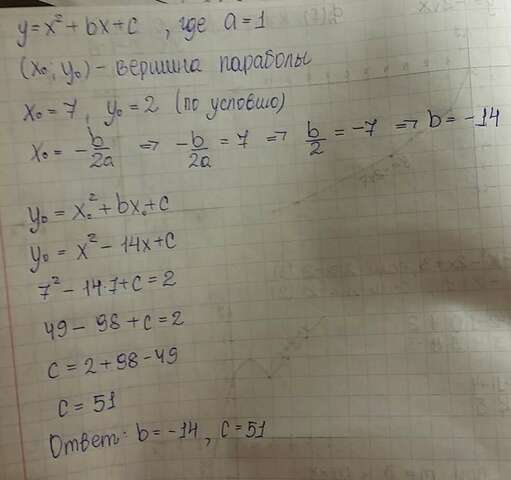 y=x²+bx+c , где a=1
(x₀; y₀) - вершина параболы
x₀=7 , y₀=2 (по условию)
x₀ = -b/2a => -b/2a = 7 => b/2 = -7 => b = -14
y₀ = x₀²+bx₀+c
y₀ = x²-14x+c
7²-14·7+c=2
49-98+c=2
c=2+98-49
c=51
Ответ: b=-14, c=51